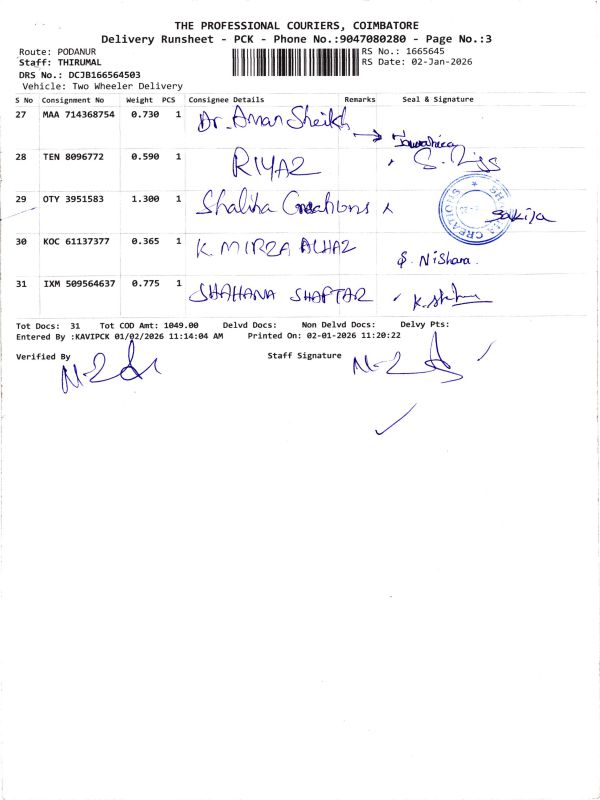 THE PROFESSIONAL COURIERS, COIMBATORE
Delivery Runsheet - PCK - Phone No.:9047080280 - Page No.:3
Route: PODANUR RS No.: 1665645
Staff: THIRUMAL RS Date: 02-Jan-2026
DRS No.: DCJB166564503
Vehicle: Two Wheeler Delivery
S No Consignment No Weight PCS Consignee Details Remarks Seal & Signature
27 MAA 714368754 0.730 1 Dr. Aman Sheikh
28 TEN 8096772 0.590 1 RIYAZ
29 OTY 3951583 1.300 1 Shaliha Creations Sakija
30 KOC 61137377 0.365 1 K. MIRZA ALHAZ S. Nishara.
31 IXM 509564637 0.775 1 SHAHANA SHAFTAR
Tot Docs: 31 Tot COD Amt: 1049.00 Delvd Docs: Non Delvd Docs: Delvy Pts:
Entered By :KAVIPCK 01/02/2026 11:14:04 AM Printed On: 02-01-2026 11:20:22
Verified By Staff Signature